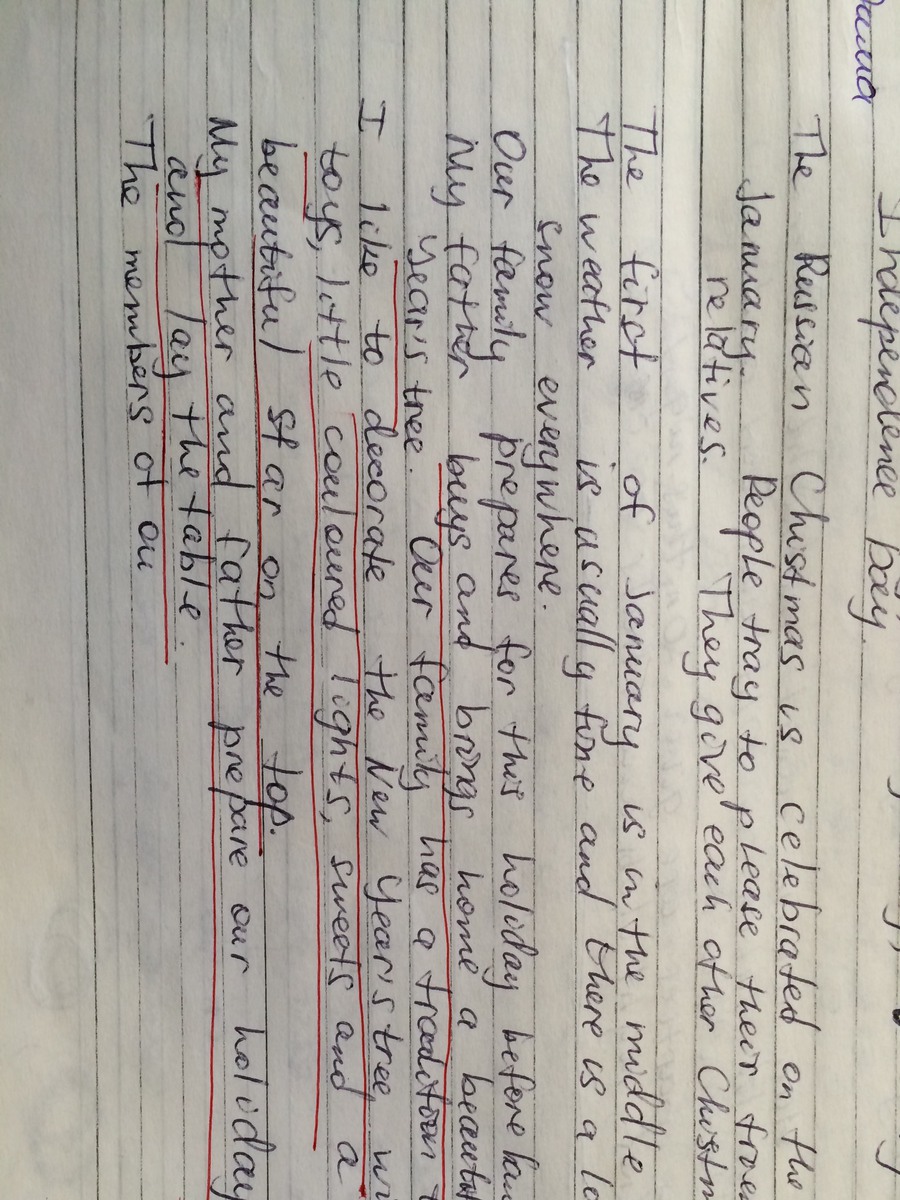 Independence Day.
The Russian Chistmas is celebrated on the
January. People tray to please their
relatives. They give each other
The first of January is in the middle
The weather is usually fine and there is a
snow everywhere.
Our family prepares for this holiday before
My father buys and brings home a
Year's tree. Our family has a tradition
I like to decorate the New Year's tree,
toys, little couloured lights, sweets and a
beautiful star on the top.
My mother and father prepare our holiday
and lay the table.
The members of ou